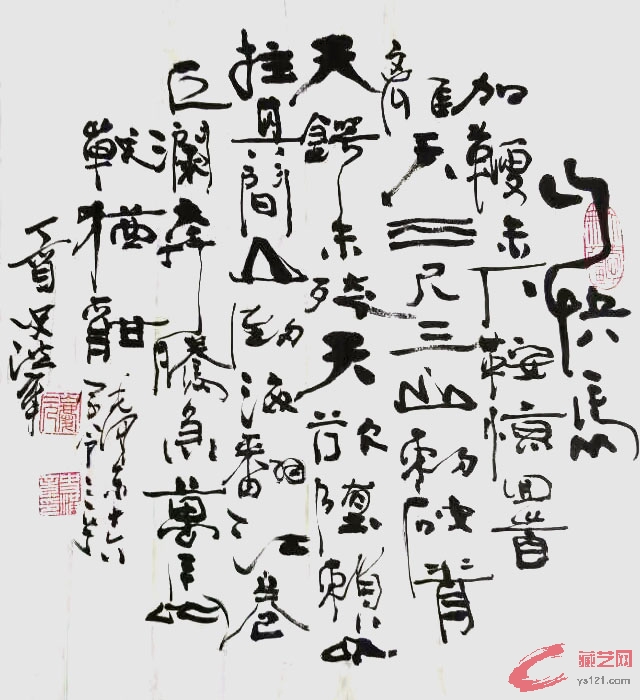 山快馬
加鞭未下鞍驚回首
離天三尺三山刺破青
天鍔未殘天欲墮賴以
拄其間山倒海翻江卷
巨瀾奔騰急萬馬
戰猶酣
毛澤東十六字令三首
藏艺网
ys121.com